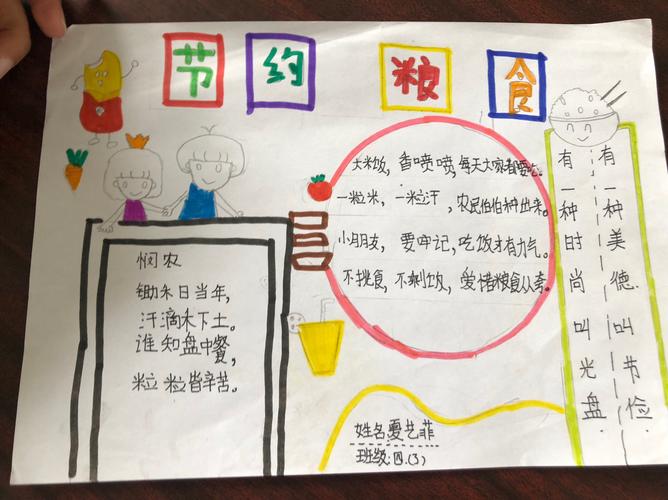 节约粮食
大米饭,香喷喷,每天大家都要吃。
一粒米,一粒汗,农民伯伯种出来。
小朋友,要牢记,吃饭才有力气。
不挑食,不剩饭,爱惜粮食人人夸。
悯农
锄禾日当年,
汗滴禾下土。
谁知盘中餐,
粒粒皆辛苦。
有一种美德叫节俭
有一种时尚叫光盘
姓名夏艺菲
班级:四.(3)